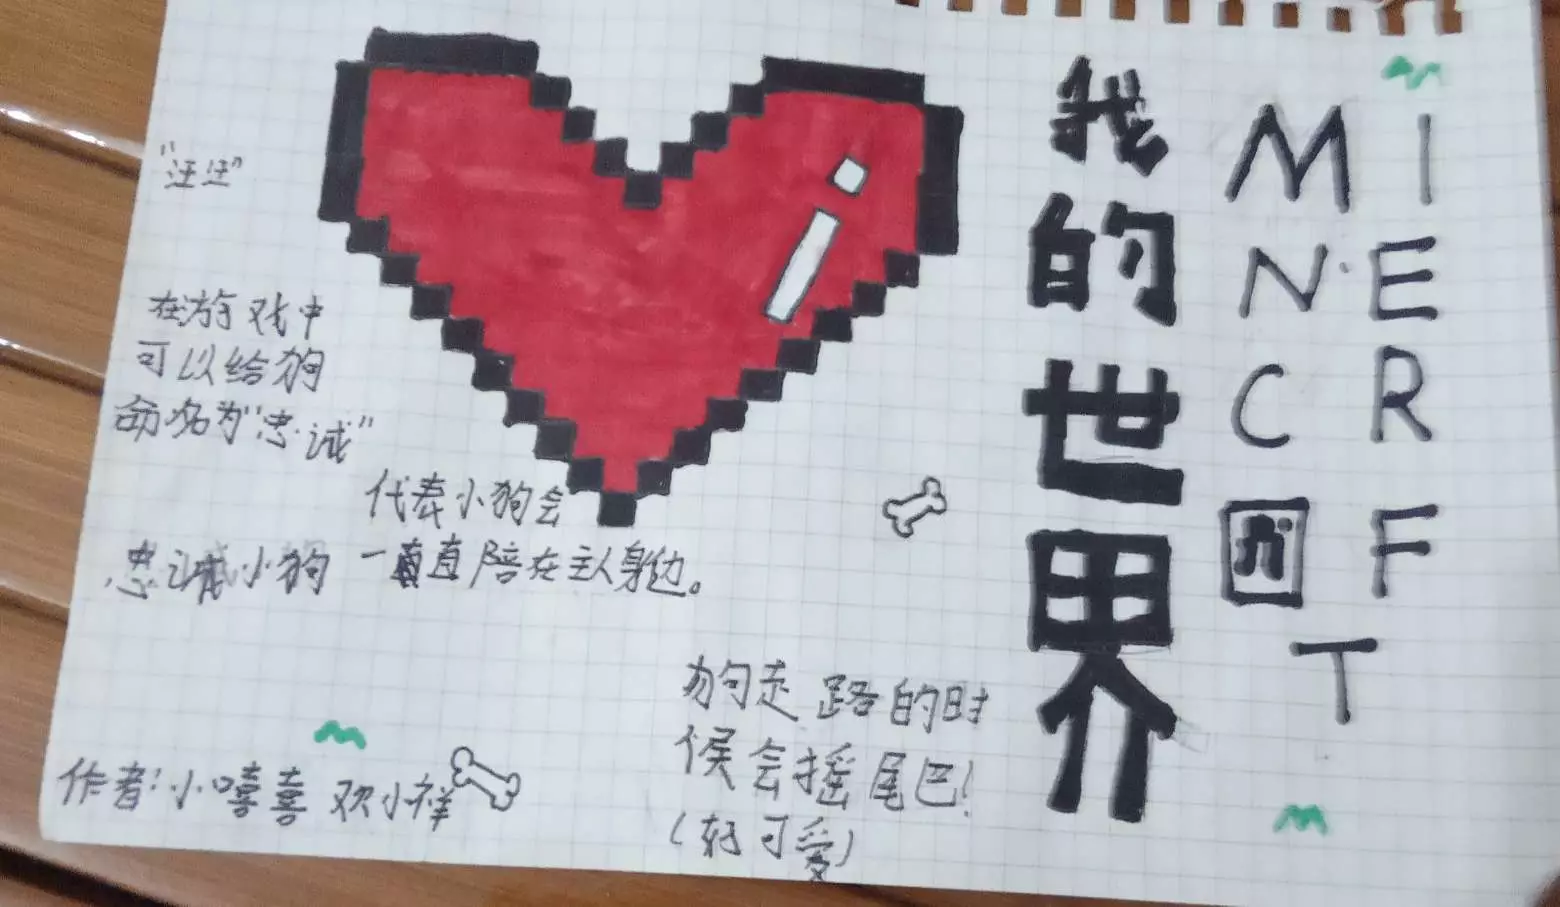 我的世界
M I
N E
C R
A F
T
"汪汪"
在游戏中
可以给狗
命名为"忠诚"
代表小狗会
一直直陪在主人身边。
忠诚小狗
狗走路的时
候会摇尾巴!
(好可爱)
作者:小嘻喜欢小祥